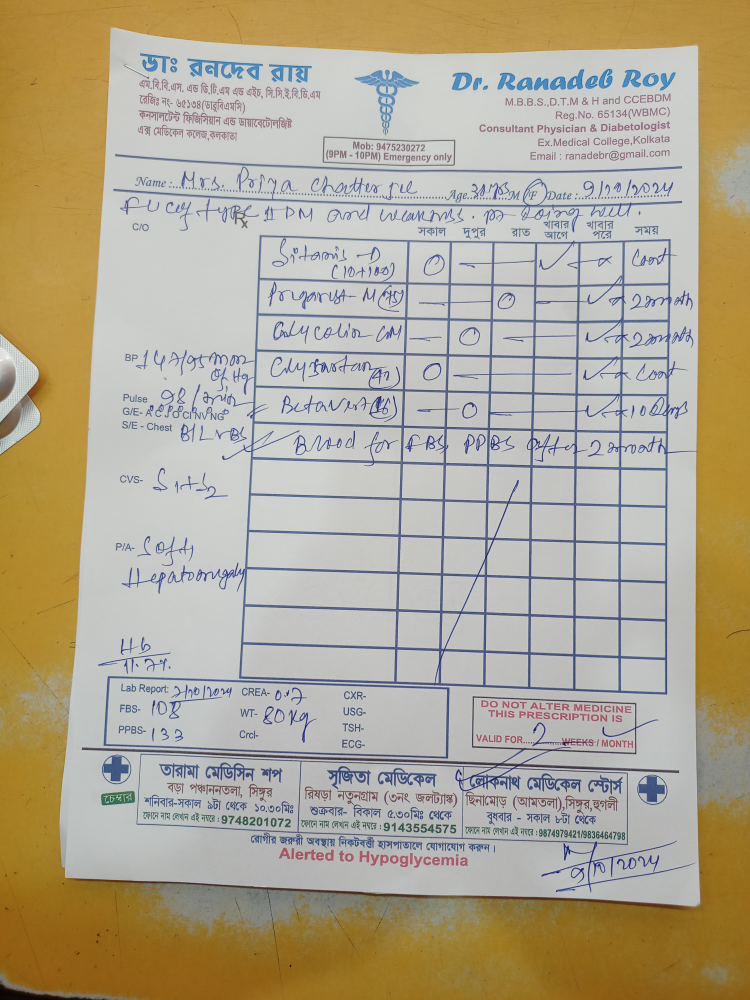 ডাঃ রনদেব রায়
এম.বি.বি.এস. এন্ড ডি.টি.এম এন্ড এইচ, সি.সি.ই.বি.ডি.এম
রেজিঃ নং- ৬৫১৩৪(ডাব্লুবিএমসি)
কনসালটেন্ট ফিজিসিয়ান এন্ড ডায়াবেটোলজিষ্ট
এক্স মেডিকেল কলেজ,কলকাতা
Mob: 9475230272
(9PM - 10PM) Emergency only
Dr. Ranadeb Roy
M.B.B.S.,D.T.M & H and CCEBDM
Reg.No. 65134(WBMC)
Consultant Physician & Diabetologist
Ex.Medical College,Kolkata
Email : ranadebr@gmail.com
Name : Mrs. Priya Chatterjee Age. M/F Date : 9/10/2024
F U C of type II DM and weakness. Pt doing well.
C/O Rx
সকাল দুপুর রাত খাবার আগে খাবার পরে সময়
- D (10+100) Cont
- M 2 month
2 month
BP 147/95 mmm of Hg
Cont
Pulse 98/min
G/E- A C J C Cl NV NG
10 Days
S/E - Chest B/L VBS
Blood for FBS, PPBS after 2 month
CVS- S1+S2
P/A- Soft,
Hepatomegaly
Hb
11.7%
Lab Report: 7/10/2024 CREA- 0.7 CXR-
FBS- 108 WT- 80 Kg USG-
PPBS- 133 Crcl- TSH-
ECG-
DO NOT ALTER MEDICINE
THIS PRESCRIPTION IS
VALID FOR....2....WEEKS / MONTH
চেম্বার
তারামা মেডিসিন শপ
বড়া পঞ্চাননতলা, সিঙ্গুর
শনিবার-সকাল ৯টা থেকে ১০.৩০মিঃ
ফোনে নাম লেখান এই নম্বরে : 9748201072
সুজিতা মেডিকেল
রিষড়া নতুনগ্রাম (৩নং জলট্যাঙ্ক)
শুক্রবার- বিকাল ৫.৩০মিঃ থেকে
ফোনে নাম লেখান এই নম্বরে : 9143554575
লোকনাথ মেডিকেল স্টোর্স
ছিনামোড় (আমতলা),সিঙ্গুর,হুগলী
বুধবার - সকাল ৮টা থেকে
ফোনে নাম লেখান এই নম্বরে : 9874979421/9836464798
রোগীর জরুরী অবস্থায় নিকটবর্তী হাসপাতালে যোগাযোগ করুন।
Alerted to Hypoglycemia
9/10/2024